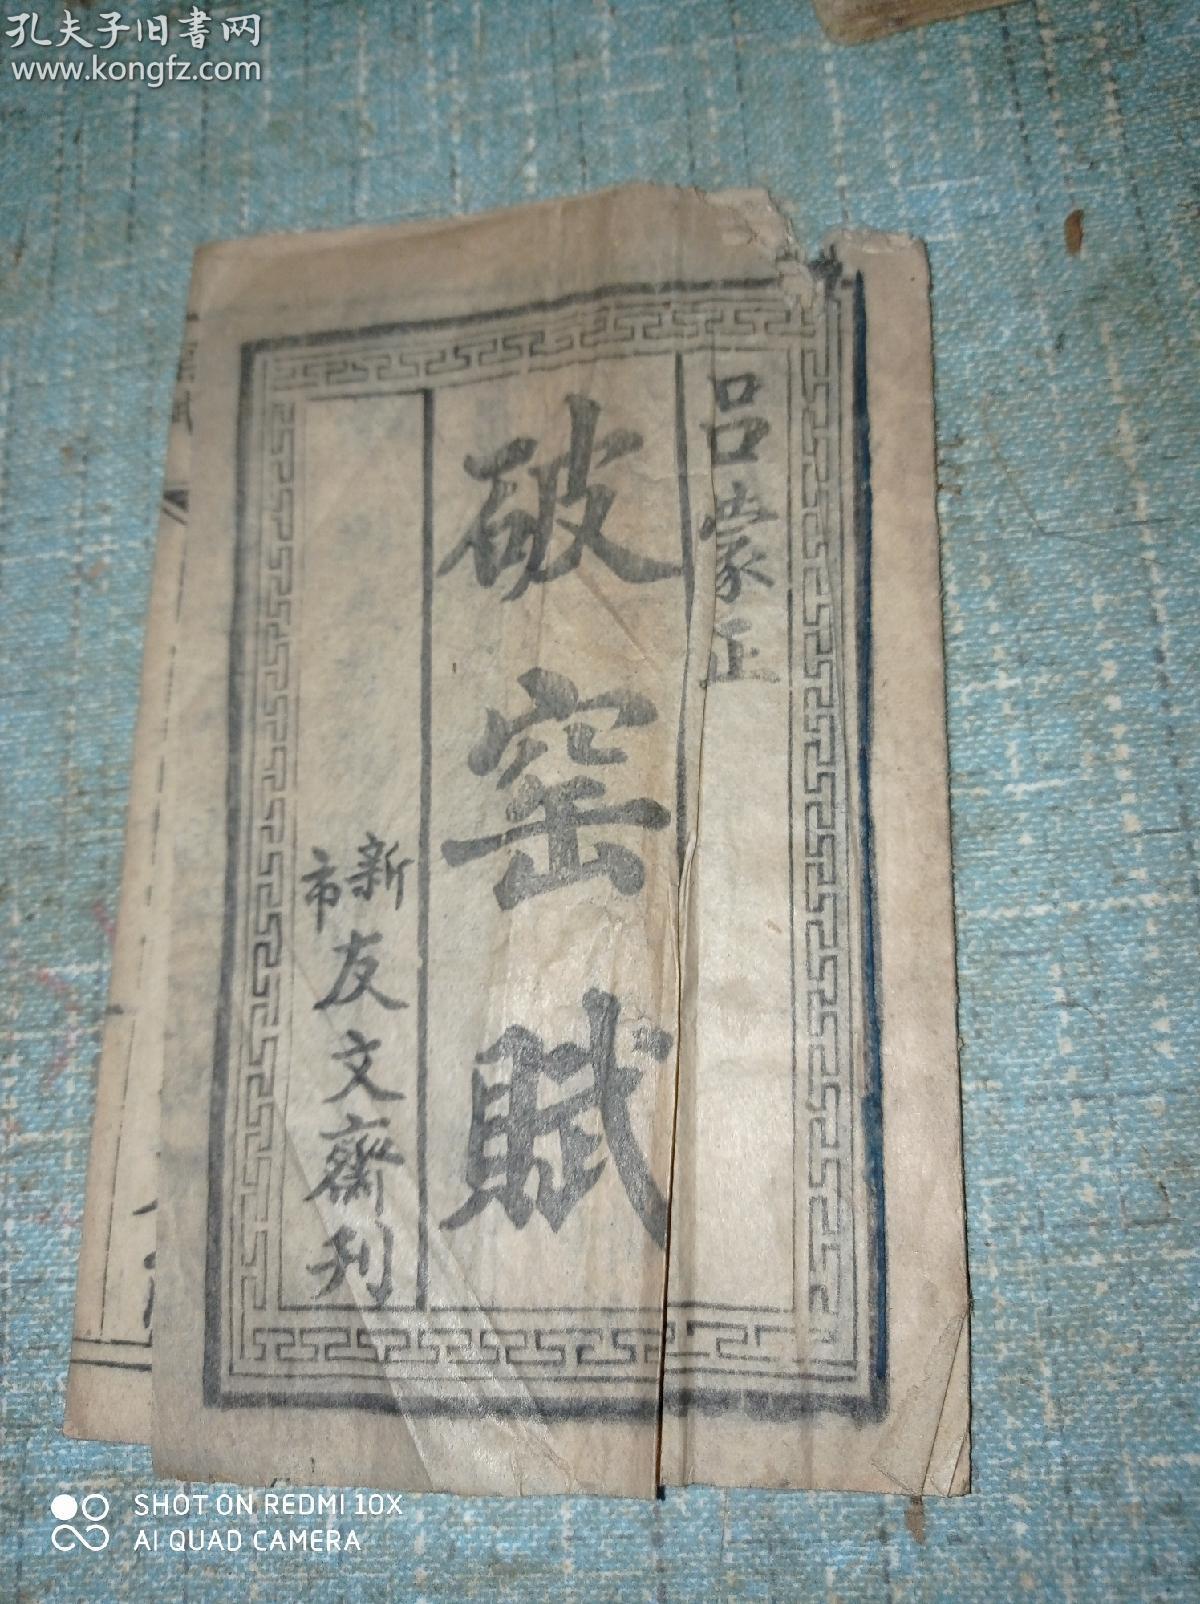 孔夫子旧書网
www.kongfz.com
吕蒙正
破窑賦
新市
友文齋刊
SHOT ON REDMI 10X
AI QUAD CAMERA